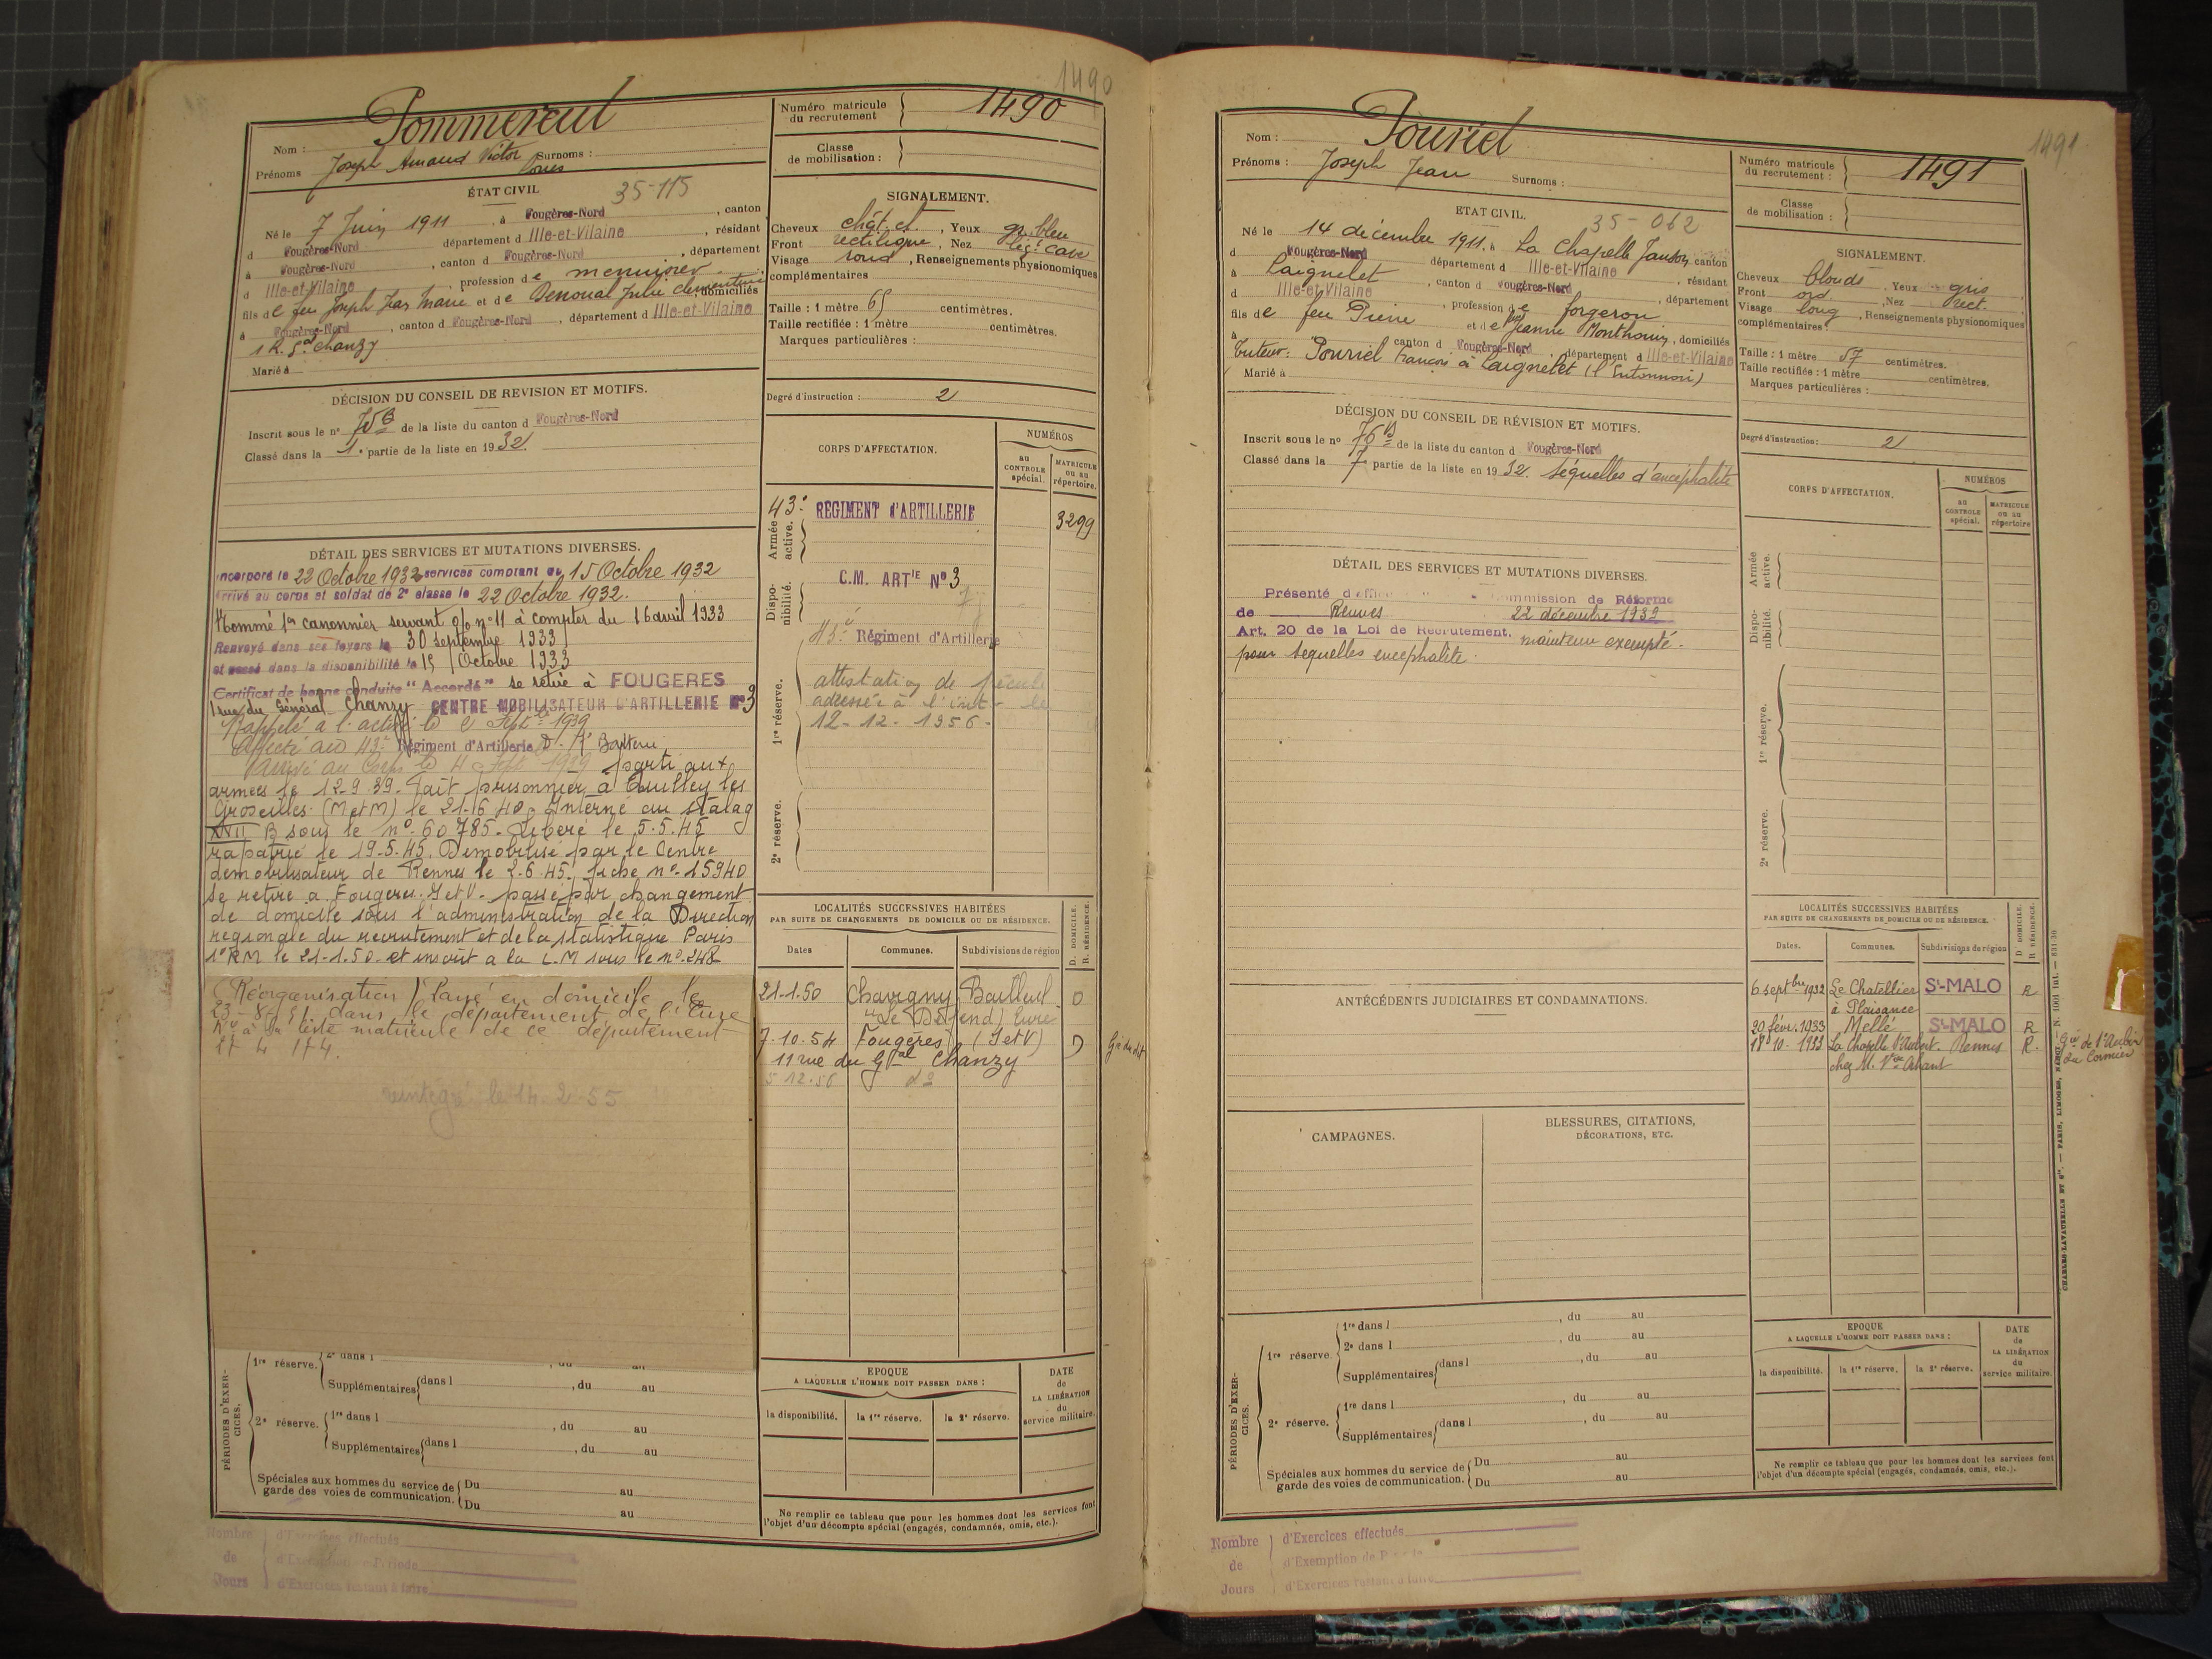 1490
Nom : Pommereul
Prénoms Joseph Amand Victor Surnoms :
Louis
ÉTAT CIVIL 35-115
Né le 7 Juin 1911, à Fougères-Nord, canton
d Fougères-Nord département d Ille-et-Vilaine, résidant
à Fougères-Nord, canton d Fougères-Nord, département
d Ille-et-Vilaine, profession de menuisier
fils de feu Joseph Jean Marie et de Denoual Julie Clementine, domiciliés
à Fougères-Nord, canton d Fougères-Nord, département d Ille-et-Vilaine
1 R. Gal Chanzy
Marié à
DÉCISION DU CONSEIL DE REVISION ET MOTIFS.
Inscrit sous le n° de la liste du canton d Fougères-Nord
Classé dans la 1e partie de la liste en 1932.
DÉTAIL DES SERVICES ET MUTATIONS DIVERSES.
Incorporé le 22 Octobre 1932 services comptant du 15 Octobre 1932
Arrivé au corps et soldat de 2e classe le 22 Octobre 1932.
Nommé 1er canonnier servant o/o n°11 à compter du 16 avril 1933
Renvoyé dans ses foyers le 30 septembre 1933
et passé dans la disponibilité le 15 Octobre 1933
Certificat de bonne conduite "Accordé" se retire à FOUGERES
1 rue du Général Chanzy CENTRE MOBILISATEUR D'ARTILLERIE N°3
Rappelé à l'activité le 2 Septbre 1939
Affecté au 43e Régiment d'Artillerie D. Batterie
Arrivé au Corps le 4 Sept 1939 parti aux
armées le 12-9-39. Fait prisonnier à Thuilley les
Groseilles (M et M) le 21-6-40. Interné au stalag
XVII B sous le n° 60785. Libéré le 5.5.45
rapatrié le 19-5.45. Démobilisé par le Centre
démobilisateur de Rennes le 2-6-45, fiche n° 15940
se retire à Fougères. I et V. passé par changement
de domicile sous l'administration de la Direction
régionale du recrutement et de la statistique Paris
1e RM le 21-1-50 et inscrit à la L.M sous le n° 248
(Réorganisation) Passé en domicile le
23-8-51 dans le département de l'Eure
N° à la liste matricule de ce département
27 4 174.
reintégré le 14-2-55
PÉRIODES D'EXERCICES.
1re réserve. 2e dans l , du au
Supplémentaires dans l , du au
2e réserve. 1re dans l , du au
Supplémentaires dans l , du au
Spéciales aux hommes du service de garde des voies de communication. Du au
Du au
Nombre de Jours
d'Exercices effectués
d'Exemption de Période
d'Exercices restant à faire
Numéro matricule du recrutement 1490
Classe de mobilisation :
SIGNALEMENT.
Cheveux chât. cl., Yeux gr. bleu
Front rectiligne, Nez leg. cave
Visage rond, Renseignements physionomiques
complémentaires
Taille : 1 mètre 65 centimètres.
Taille rectifiée : 1 mètre centimètres.
Marques particulières :
Degré d'instruction : 2
CORPS D'AFFECTATION.
NUMÉROS
au CONTROLE spécial.
MATRICULE ou au répertoire.
Armée active.
43e RÉGIMENT d'ARTILLERIE 3299
Disponibilité.
C.M. ARTIE N°3
1re réserve.
43e Régiment d'Artillerie
attestation de pécule
adressée à l'int. le
12-12-1956.
2e réserve.
LOCALITÉS SUCCESSIVES HABITÉES
PAR SUITE DE CHANGEMENTS DE DOMICILE OU DE RÉSIDENCE.
D. DOMICILE. R. RÉSIDENCE.
Dates Communes. Subdivisions de région
21-1.50 Chavigny Bailleul D
(Le Défend) Eure
7.10.54 Fougères (I et V) D Gie du dit
11 rue du Gal Chanzy
5 12.56 do
EPOQUE
A LAQUELLE L'HOMME DOIT PASSER DANS :
DATE de LA LIBÉRATION du service militaire.
la disponibilité. la 1re réserve. la 2e réserve.
Ne remplir ce tableau que pour les hommes dont les services font
l'objet d'un décompte spécial (engagés, condamnés, omis, etc.).
1491
Nom : Pouriel
Prénoms : Joseph Jean Surnoms :
ETAT CIVIL. 35-062
Né le 14 décembre 1911, à La Chapelle Janson, canton
d Fougères-Nord département d Ille-et-Vilaine, résidant
à Laignelet, canton d Fougères-Nord, département
d Ille-et-Vilaine, profession de forgeron
fils de feu Pierre et de feue Jeanne Monthouin, domiciliés
à canton d Fougères-Nord, département d Ille-et-Vilaine
Tuteur : Pouriel Francois à Laignelet (l'Entonnoir)
Marié à
DÉCISION DU CONSEIL DE RÉVISION ET MOTIFS.
Inscrit sous le n° 76 B de la liste du canton d Fougères-Nord
Classé dans la 7e partie de la liste en 1932. Séquelles d'encephalite
DÉTAIL DES SERVICES ET MUTATIONS DIVERSES.
Présenté d'office Commission de Réforme
de Rennes 22 décembre 1939
Art. 20 de la Loi de Recrutement. maintenu exempté.
pour sequelles encephalite.
ANTÉCÉDENTS JUDICIAIRES ET CONDAMNATIONS.
CAMPAGNES.
BLESSURES, CITATIONS,
DÉCORATIONS, ETC.
PÉRIODES D'EXERCICES.
1re réserve. 1re dans l , du au
2e dans l , du au
Supplémentaires dans l , du au
, du au
2e réserve. 1re dans l , du au
Supplémentaires dans l , du au
Spéciales aux hommes du service de garde des voies de communication. Du au
Du au
Nombre de Jours
d'Exercices effectués
d'Exemption de
d'Exercices restant à faire
Numéro matricule du recrutement : 1491
Classe de mobilisation :
SIGNALEMENT.
Cheveux blonds, Yeux gris
Front ord., Nez rect.
Visage long, Renseignements physionomiques
complémentaires :
Taille : 1 mètre 57 centimètres.
Taille rectifiée : 1 mètre centimètres.
Marques particulières :
Degré d'instruction : 2
CORPS D'AFFECTATION.
NUMÉROS
au CONTROLE spécial.
MATRICULE ou au répertoire
Armée active.
Disponibilité.
1re réserve.
2e réserve.
LOCALITÉS SUCCESSIVES HABITÉES
PAR SUITE DE CHANGEMENTS DE DOMICILE OU DE RÉSIDENCE.
D DOMICILE. R RÉSIDENCE.
Dates. Communes. Subdivisions de région
6 septbre 1932 Le Chatellier St-MALO R
à Plaisance
20 févr. 1933 Mellé St-MALO R
18-10-1933 La Chapelle St Aubert Rennes R. Gie de St Aubin
chez M. Vve du Cormier
EPOQUE
A LAQUELLE L'HOMME DOIT PASSER DANS :
DATE de LA LIBÉRATION du service militaire.
la disponibilité. la 1re réserve. la 2e réserve.
Ne remplir ce tableau que pour les hommes dont les services font
l'objet d'un décompte spécial (engagés, condamnés, omis, etc.).
CHARLES-LAVAUZELLE ET Cie. — PARIS, LIMOGES, NANCY. — N. 1001 bis. — 831-30